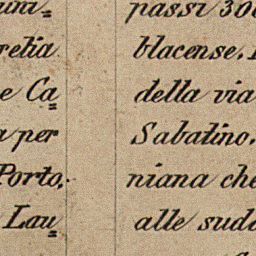 relia
e Ca=
a per
Porto.
Lau=
passi 300
blacense.
della via
Sabatino.
niana che
alle sudd